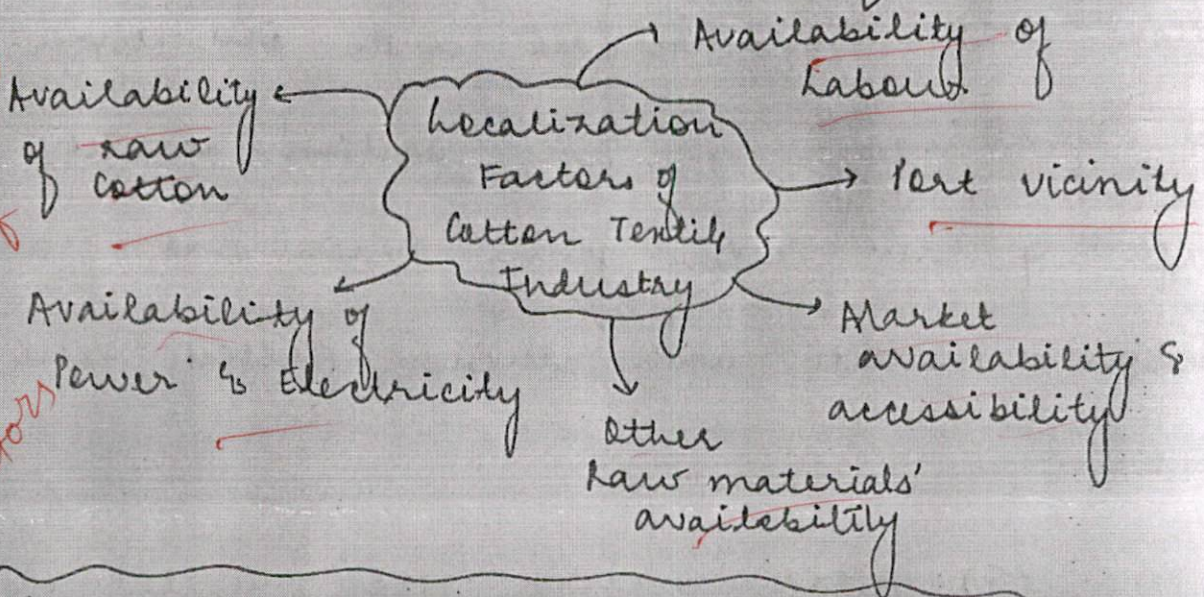 Availability of
Labour
Availability
of raw
Cotton
Localization
Factors of
Cotton Textile
Industry
Port vicinity
Availability of
Power & Electricity
Market
availability &
accessibility
Other
Raw materials'
availability